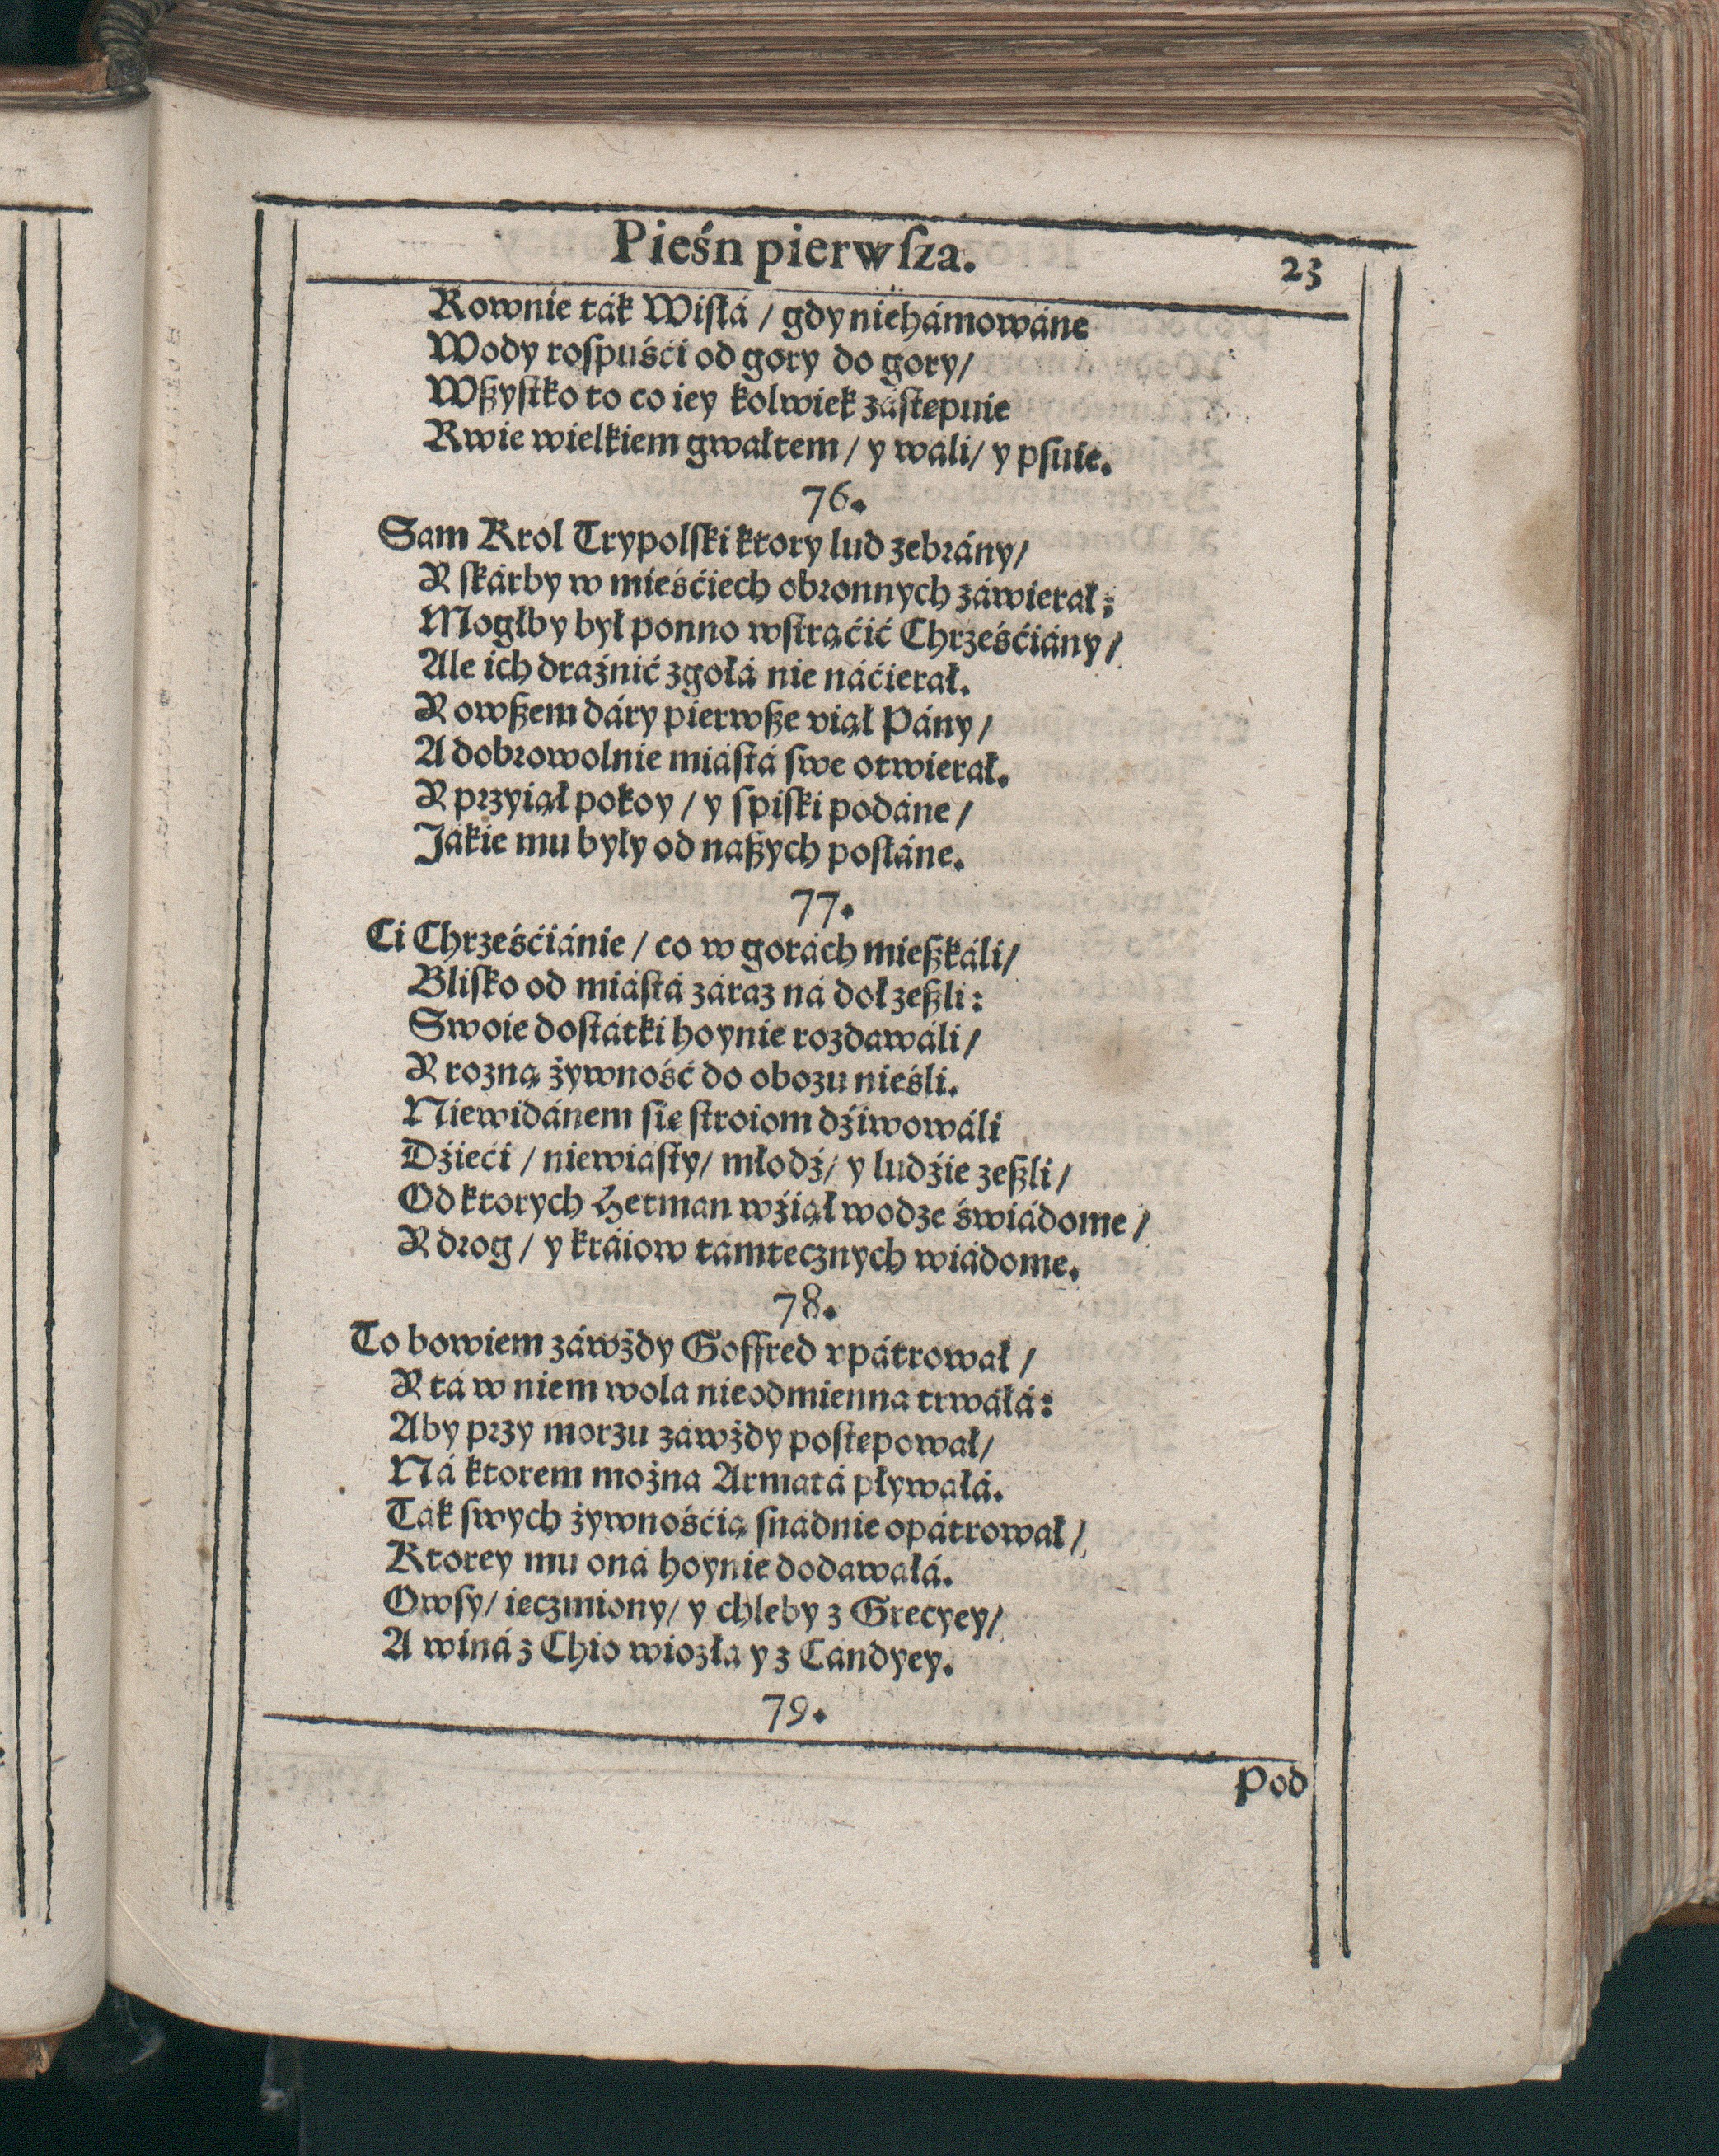 Pieśn pierwſza.
23
Rownie ták Wisłá / gdy niehámowáne
Wody roſpuśći od gory do gory /
Wßyſtko to co iey kolwiek záſtępuie
Rwie wielkiem gwałtem / y wali / y pſuie.
76.
Sam Krol Trypolſki ktory lud zebrány /
Y ſkárby w mieśćiech obronnych záwierał;
Mogłby był ponno wſtráćić Chrześćiány /
Ale ich draźnić zgołá nie náćierał.
Y owßem dáry pierwße viął Pány /
A dobrowolnie miáſtá ſwe otwierał.
Y przyiął pokoy / y ſpiſki podáne /
Jákie mu były od naßych poſłáne.
77.
Ci Chrześćiánie / co w gorách mießkáli /
Bliſko od miáſtá záraz ná doł zeßli:
Swoie doſtátki hoynie rozdawáli /
Y rozną żywność do obozu nieśli.
Niewidánem ſię ſtroiom dźiwowáli
Dźieći / niewiaſty / młodź / y ludźie zeßli /
Od ktorych Hetman wźiął wodze świádome /
Y drog / y kráiow támtecznych wiádome.
78.
To bowiem záwżdy Goffred vpátrował /
Y tá w niem wola nieodmienna trwáłá:
Aby przy morzu záwżdy poſtępował /
Ná ktorem można Armatá pływałá.
Ták ſwych żywnośćią ſnádnie opátrował /
Ktorey mu oná hoynie dodawałá.
Owſy / ięczmiony / y chleby z Grecyey /
A winá z Chio wiozłá y z Cándyey.
79.
Pod